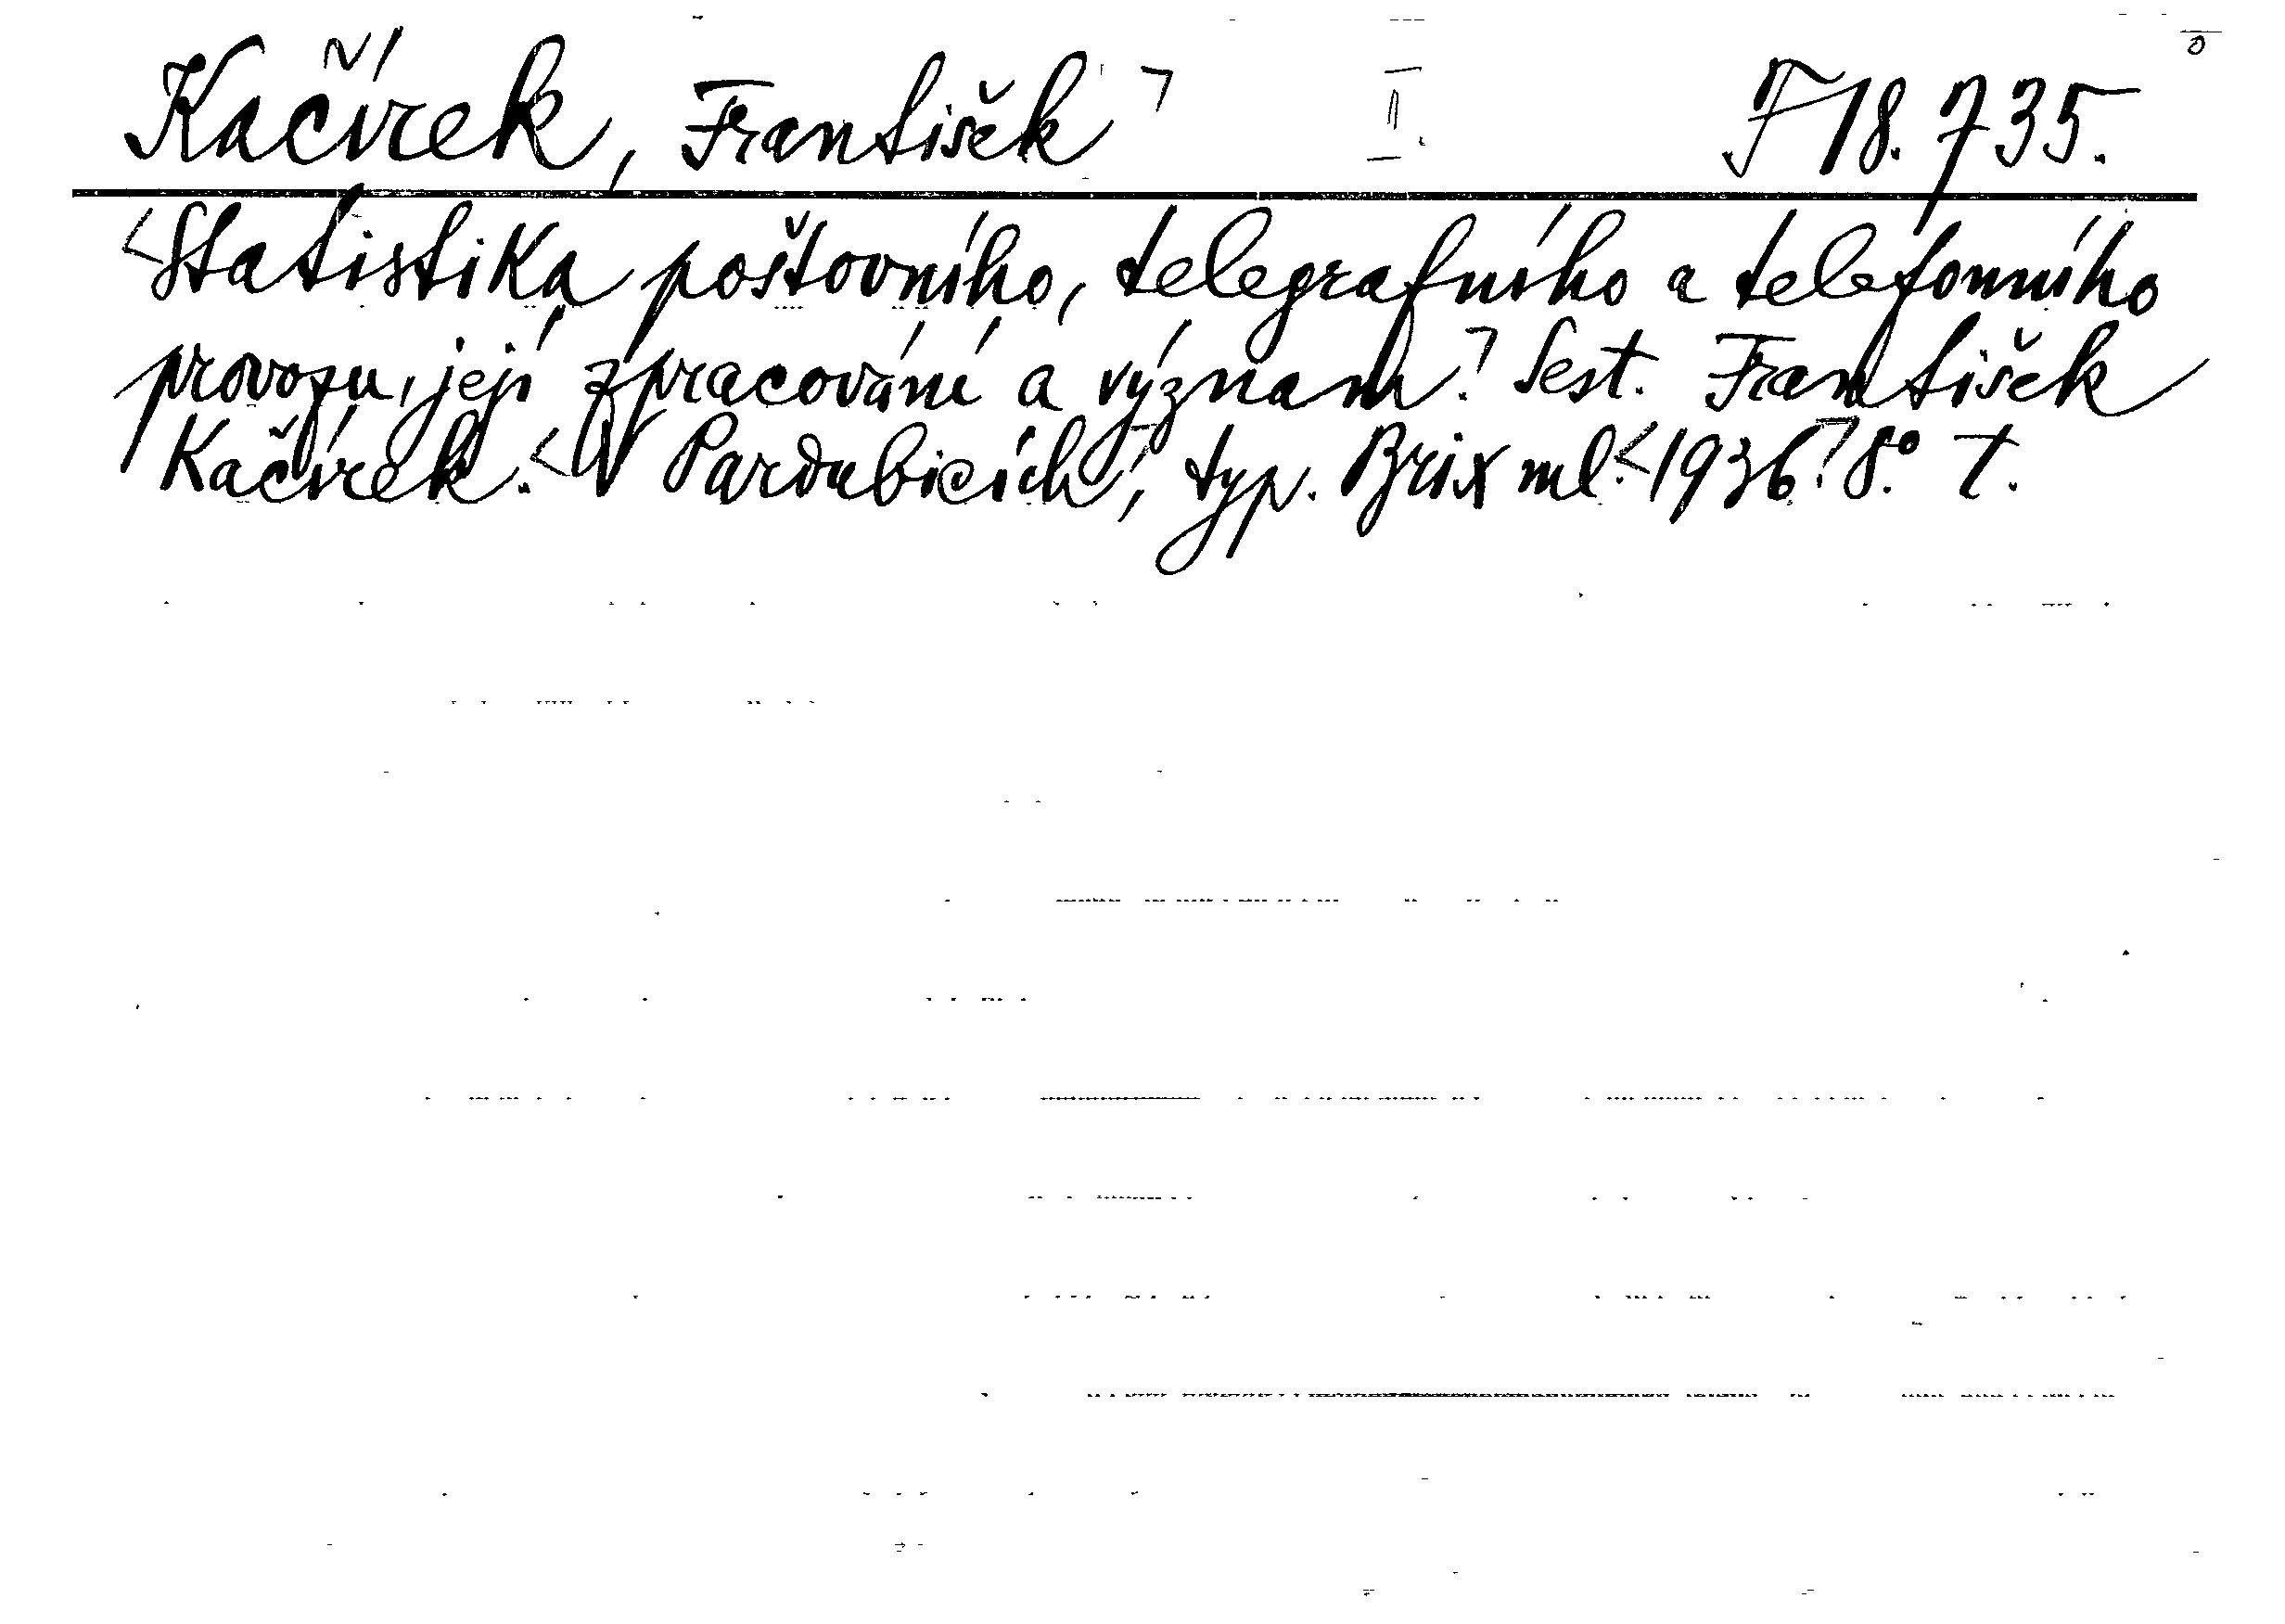 Kačírek, František ⌉ I. F 18.735.
<Statistika poštovního, telegrafního a telefonního
provozu, její zpracování a význam.⌉ Sest. František
Kačírek. <V Pardubicích,⌉ typ. Brix ml. <1936.⌉ 8.° T.